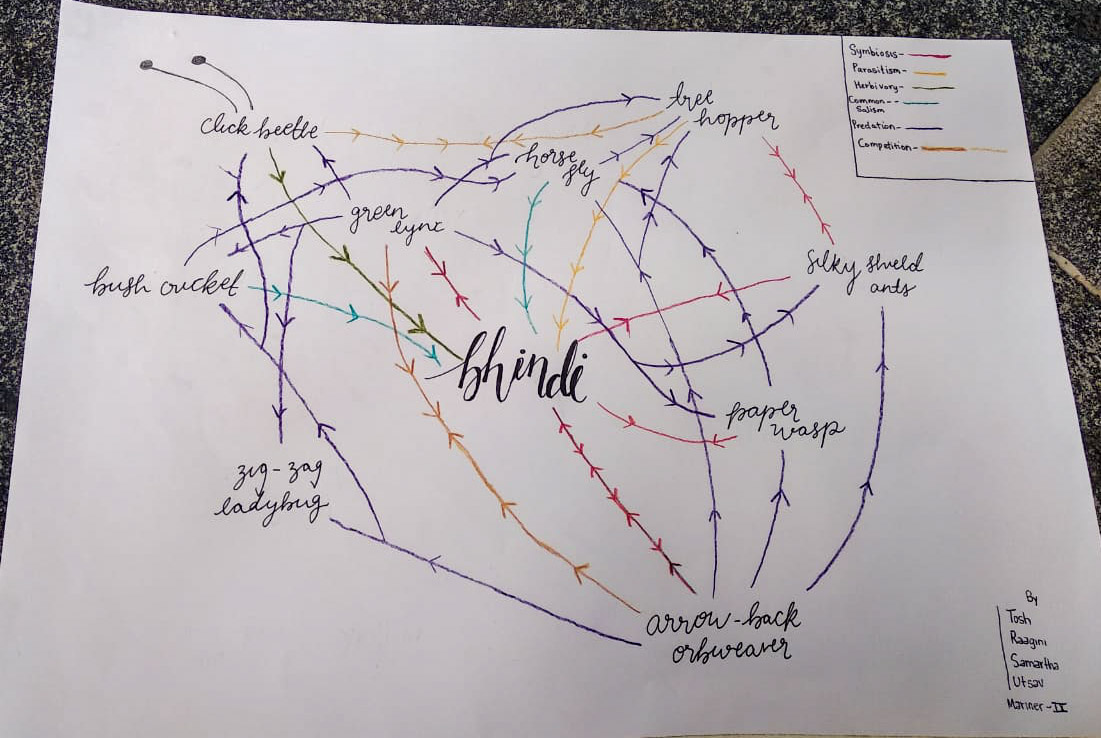 Symbiosis-
Parasitism-
Herbivory-
Common--
Salism
Predation-
Competition-
click beetle
tree
hopper
horse
fly
green
lynx
bush cricket
silky shield
ants
bhindi
paper
wasp
zig-zag
ladybug
arrow-back
orbweaver
By
Tosh
Raagini
Samartha
Utsav
Mariner-II